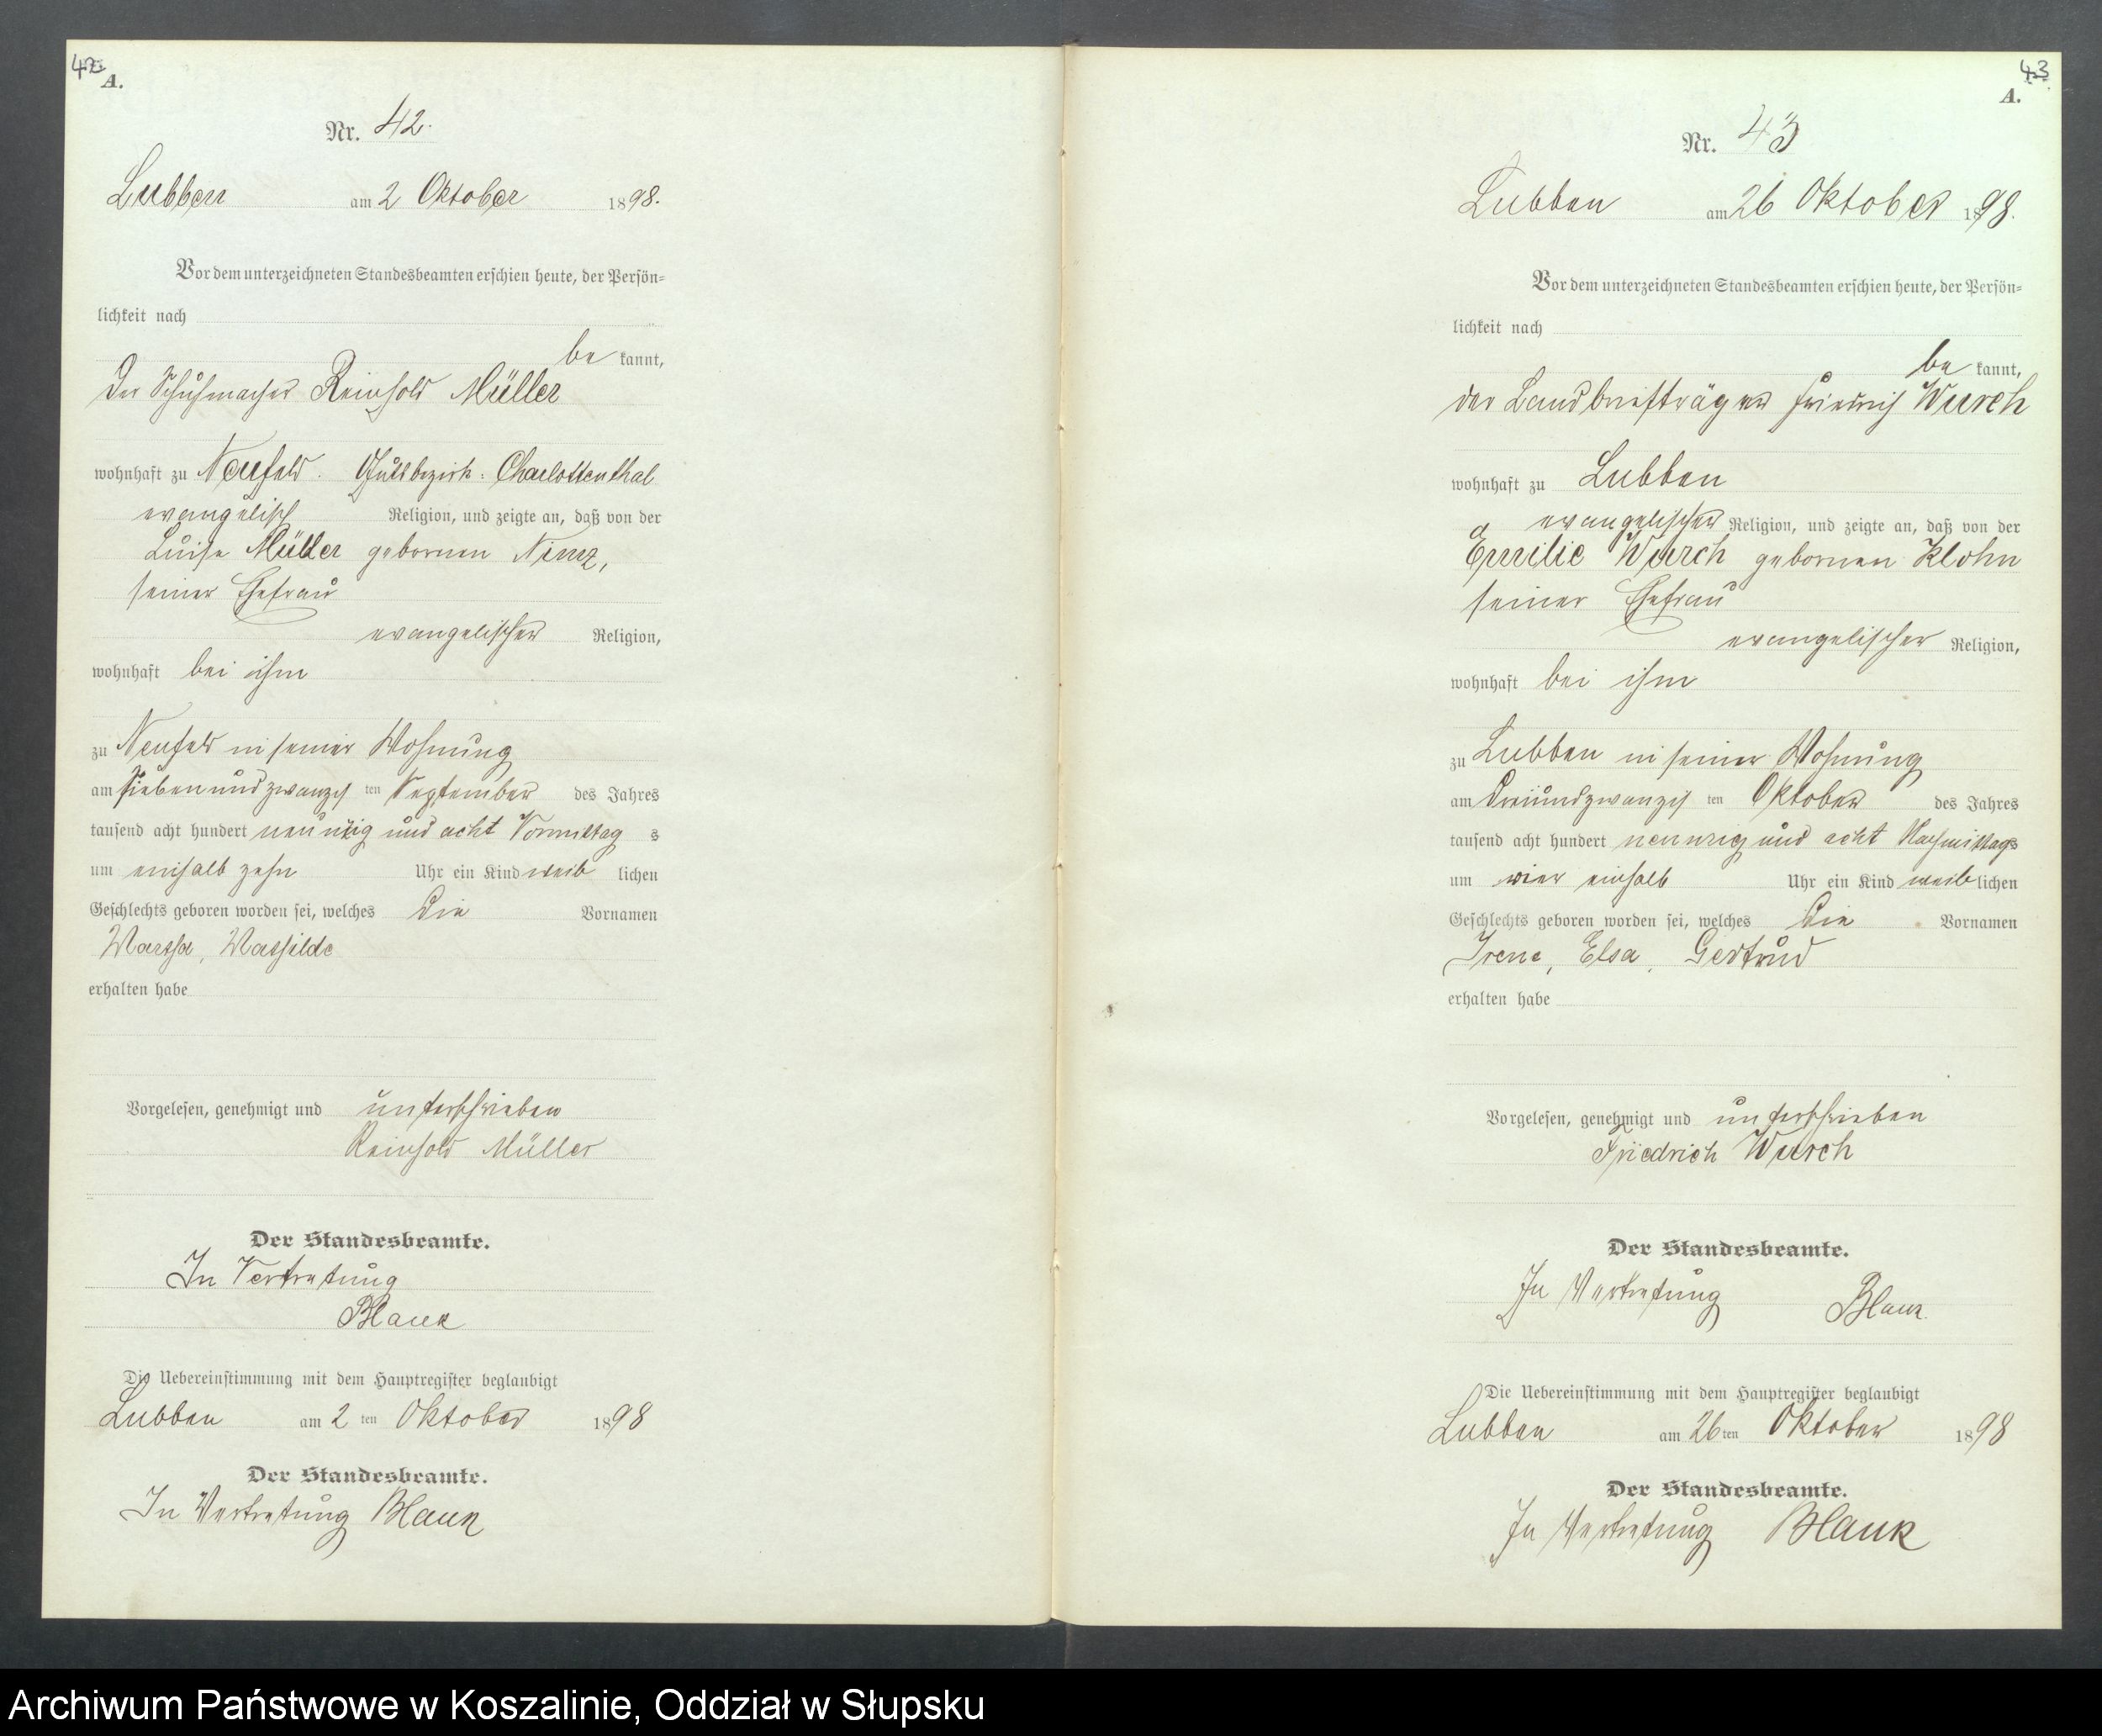 42
A.
Nr. 42.
Lubben am 2 Oktober 1898.
Vor dem unterzeichneten Standesbeamten erschien heute, der Persön-
lichkeit nach
be kannt,
Der Schuhmacher Reinhold Müller
wohnhaft zu Neufeld. Gutsbezirk: Charlottenthal
evangelisch Religion, und zeigte an, daß von der
Luise Müller gebornen Nimz,
seiner Ehefrau
evangelischer Religion,
wohnhaft bei ihm
zu Neufeld in seiner Wohnung
am siebenundzwanzig ten September des Jahres
tausend acht hundert neunzig und acht Vormittag s
um einhalb zehn Uhr ein Kind weib lichen
Geschlechts geboren worden sei, welches die Vornamen
Martha, Mathilde
erhalten habe
Vorgelesen, genehmigt und unterschrieben
Reinhold Müller
Der Standesbeamte.
In Vertretung
Blank
Die Uebereinstimmung mit dem Hauptregister beglaubigt
Lubben am 2 ten Oktober 1898
Der Standesbeamte.
In Vertretung Blank
43
A.
Nr. 43
Lubben am 26 Oktober 1898.
Vor dem unterzeichneten Standesbeamten erschien heute, der Persön-
lichkeit nach
be kannt,
der Landbriefträger Friedrich Wurch
wohnhaft zu Lubben
evangelischer Religion, und zeigte an, daß von der
Emilie Wurch gebornen Klohn
seiner Ehefrau
evangelischer Religion,
wohnhaft bei ihm
zu Lubben in seiner Wohnung
am dreiundzwanzig ten Oktober des Jahres
tausend acht hundert neunzig und acht Nachmittags
um vier einhalb Uhr ein Kind weib lichen
Geschlechts geboren worden sei, welches die Vornamen
Irene, Elsa, Gertrud
erhalten habe
Vorgelesen, genehmigt und unterschrieben
Friedrich Wurch
Der Standesbeamte.
In Vertretung Blank
Die Uebereinstimmung mit dem Hauptregister beglaubigt
Lubben am 26 ten Oktober 1898
Der Standesbeamte.
In Vertretung Blank
Archiwum Państwowe w Koszalinie, Oddział w Słupsku